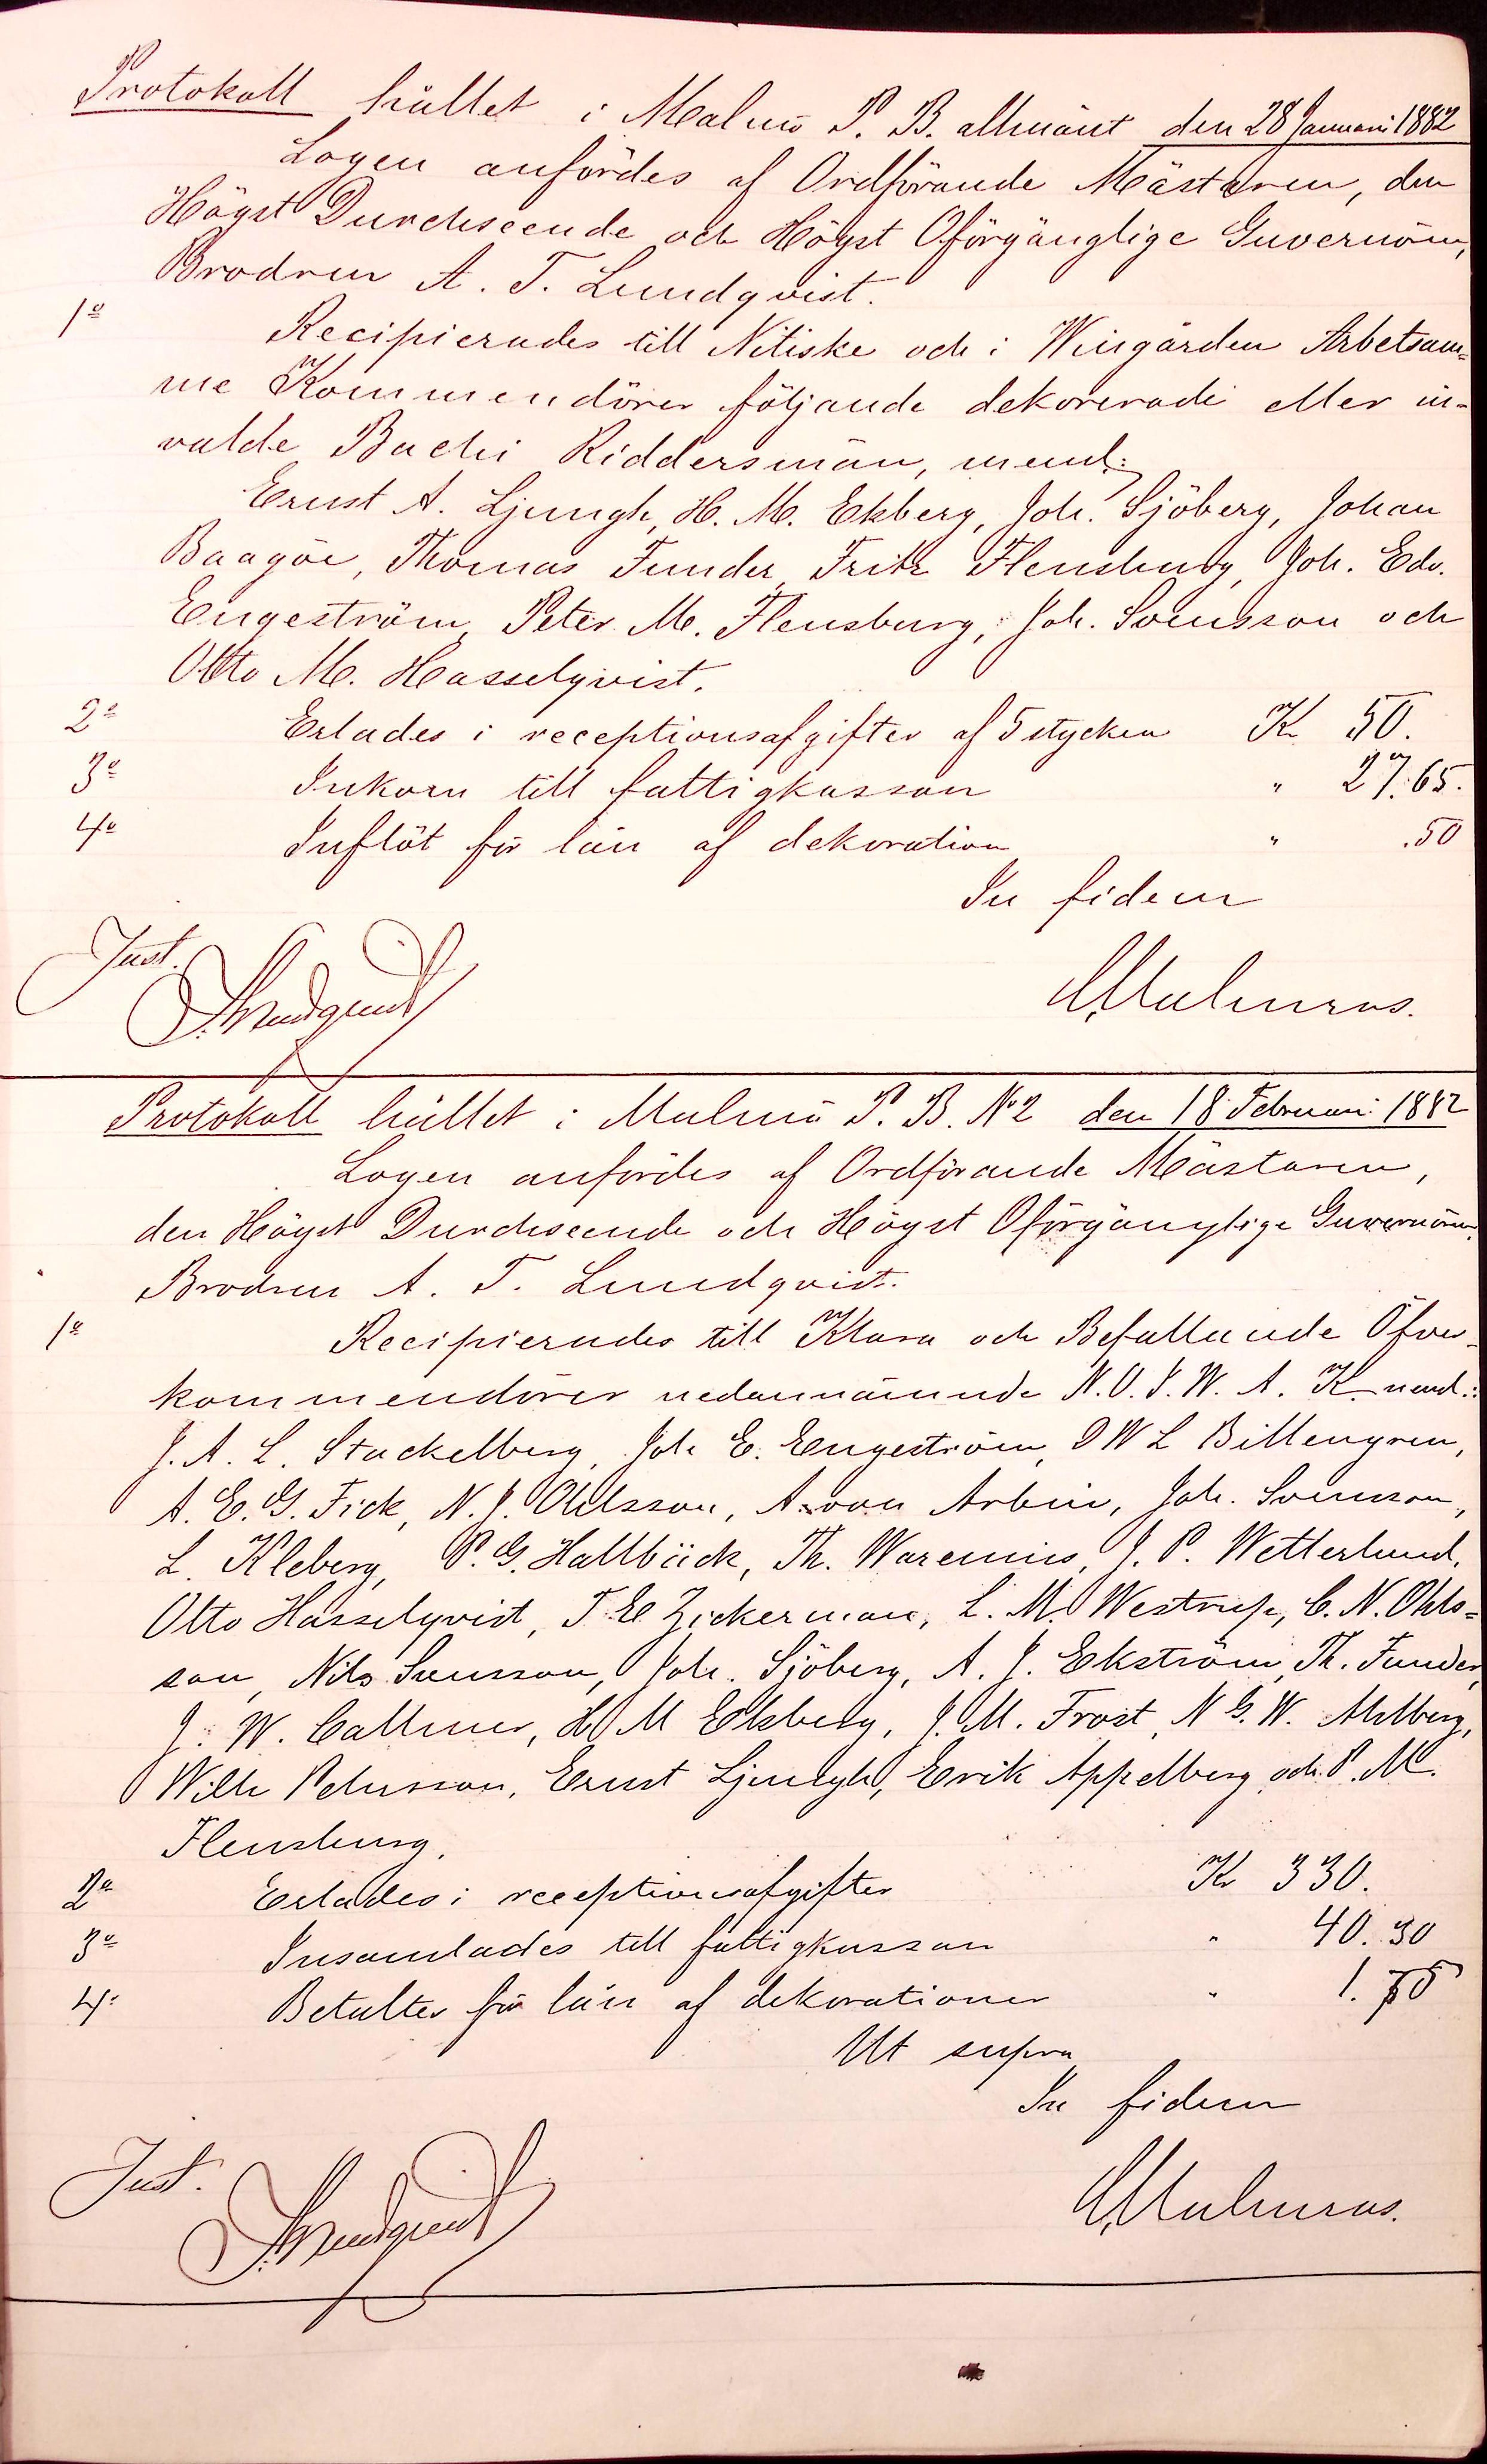 Protokoll hållet i Malmö P. B. allmänt den 28 Januari 1882
Logen anfördes af Ordförande Mästaren, den
Högst Durchseende och Högst Oförgänglige Guvernören,
Brodren A. T. Lundqvist.
1o Recipierades till Nitiske och i Wingården Arbetsam=
me Kommendörer följande dekorerade eller in-
valde Bachi Riddersmän, neml:
Ernst A. Ljungh, H. M. Ekberg, Joh. Sjöberg, Johan
Baagöe, Thomas Funder, Fritz Flensburg, Joh. Edv.
Engeström, Peter M. Flensburg, Joh. Svensson och
Otto M. Hasselqvist.
2o Erlades i receptionsafgifter af 5 stycken K 50.
3o Inkom till fattigkassan " 27.65.
4o Inflöt för lån af dekoration " .50
In fidem
Just.
A. T. Lundqvist
Malmros.
Protokoll hållet i Malmö P. B. No 2 den 18 Februari 1882
Logen anfördes af Ordförande Mästaren,
den Högst Durchseende och Högst Oförgänglige Guvernören,
Brodren A. T. Lundqvist.
1o Recipierades till Klara och Befallande Öfver-
kommendörer nedannämnde N. O. I. W. A. K. neml.:
J. A. L. Stackelberg, Joh E. Engeström, O W L Billengren,
A. E. G. Fick, N. J. Ohlsson, A. von Arbin, Joh. Svensson,
L. Kleberg, P. G. Hallbäck, Th. Waremius, J. P. Wetterlund,
Otto Hasselqvist, T. E. Zickerman, L. M. Westrup, C. N. Ohls=
son, Nils Svensson, Joh. Sjöberg, A. J. Ekström, Th. Funder,
J. W. Callmer, H M Ekberg, J. M. Frost, N G. W. Ahlberg,
Wilh Pehrsson, Ernst Ljungh, Erik Appelberg och P. M.
Flensburg.
2o Erlades i receptionsafgifter Kr 330.
3o Insamlades till fattigkassan " 40.30
4o Betaltes för lån af dekorationer " 1.75
Ut supra
In fidem
Just.
A. T. Lundqvist
Malmros.